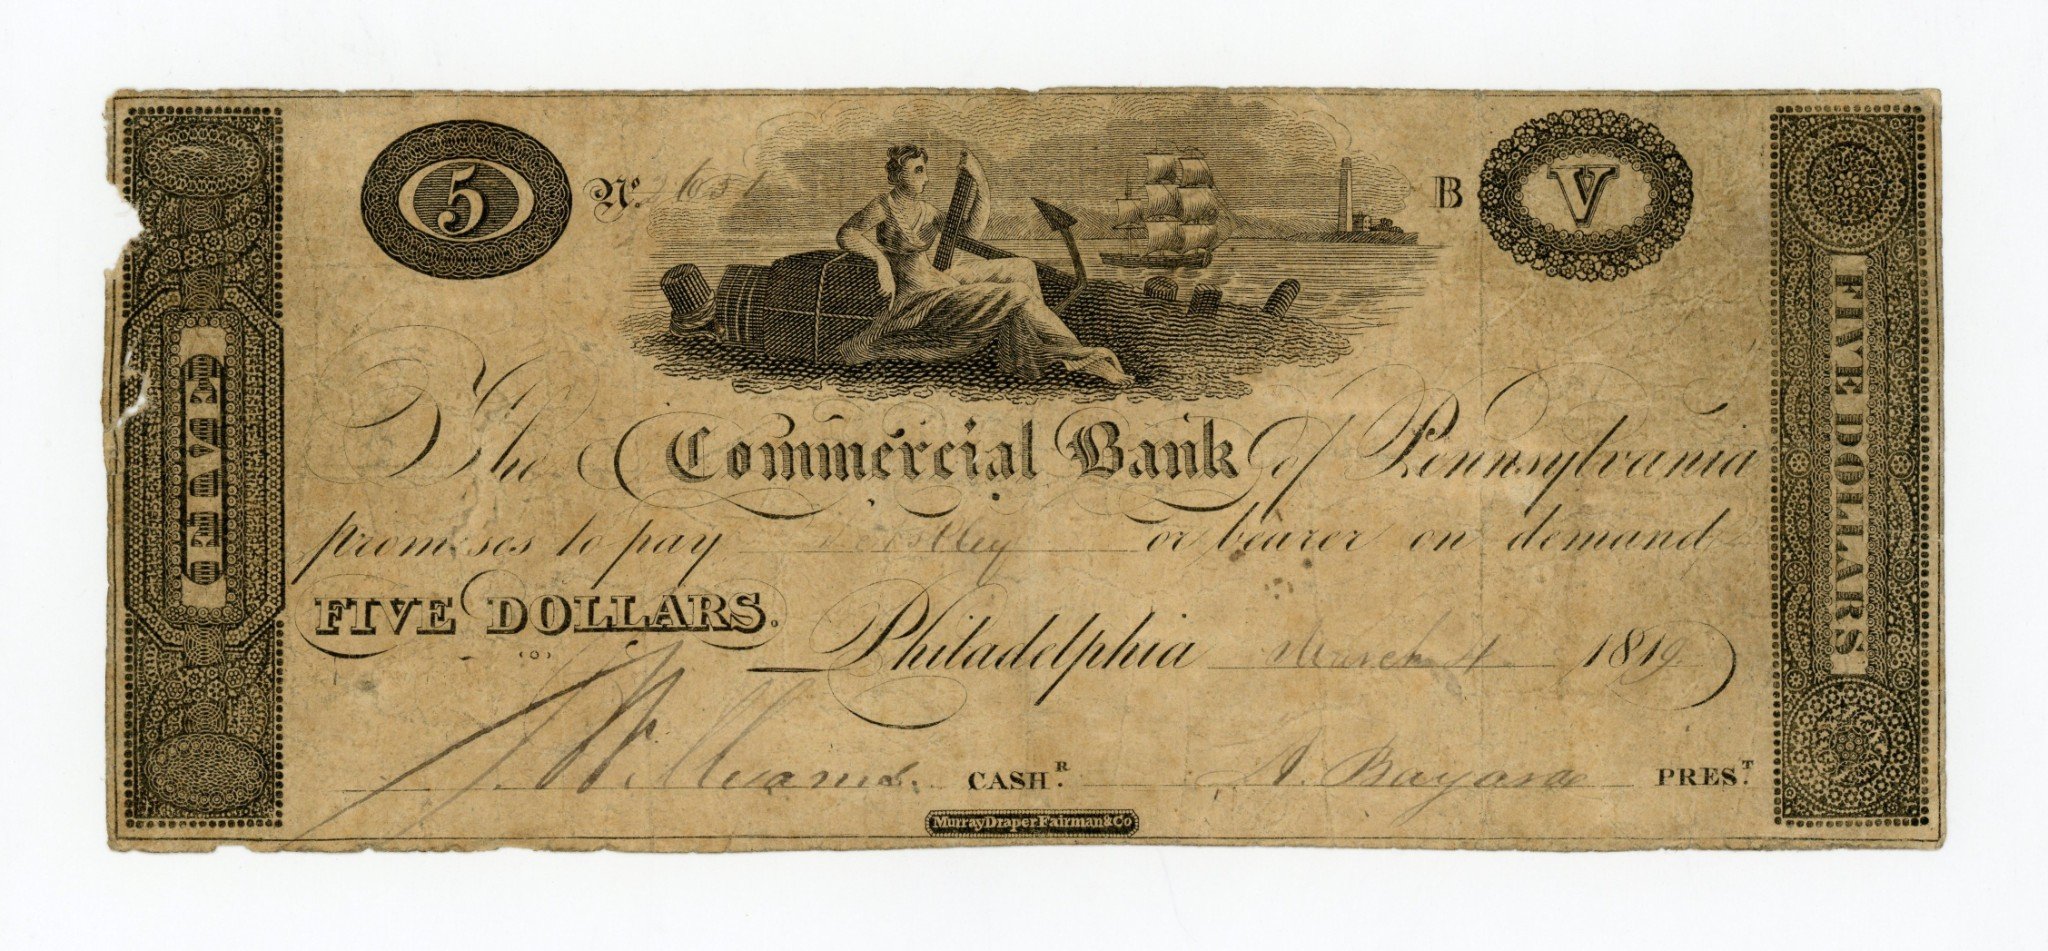 5 Nº 2651 B V
The Commercial Bank of Pennsylvania
promises to pay or bearer on demand
FIVE DOLLARS. Philadelphia March 4 1819
J Williams. CASHR. A. Bayard PREST.
Murray Draper Fairman & Co
FIVE
FIVE DOLLARS